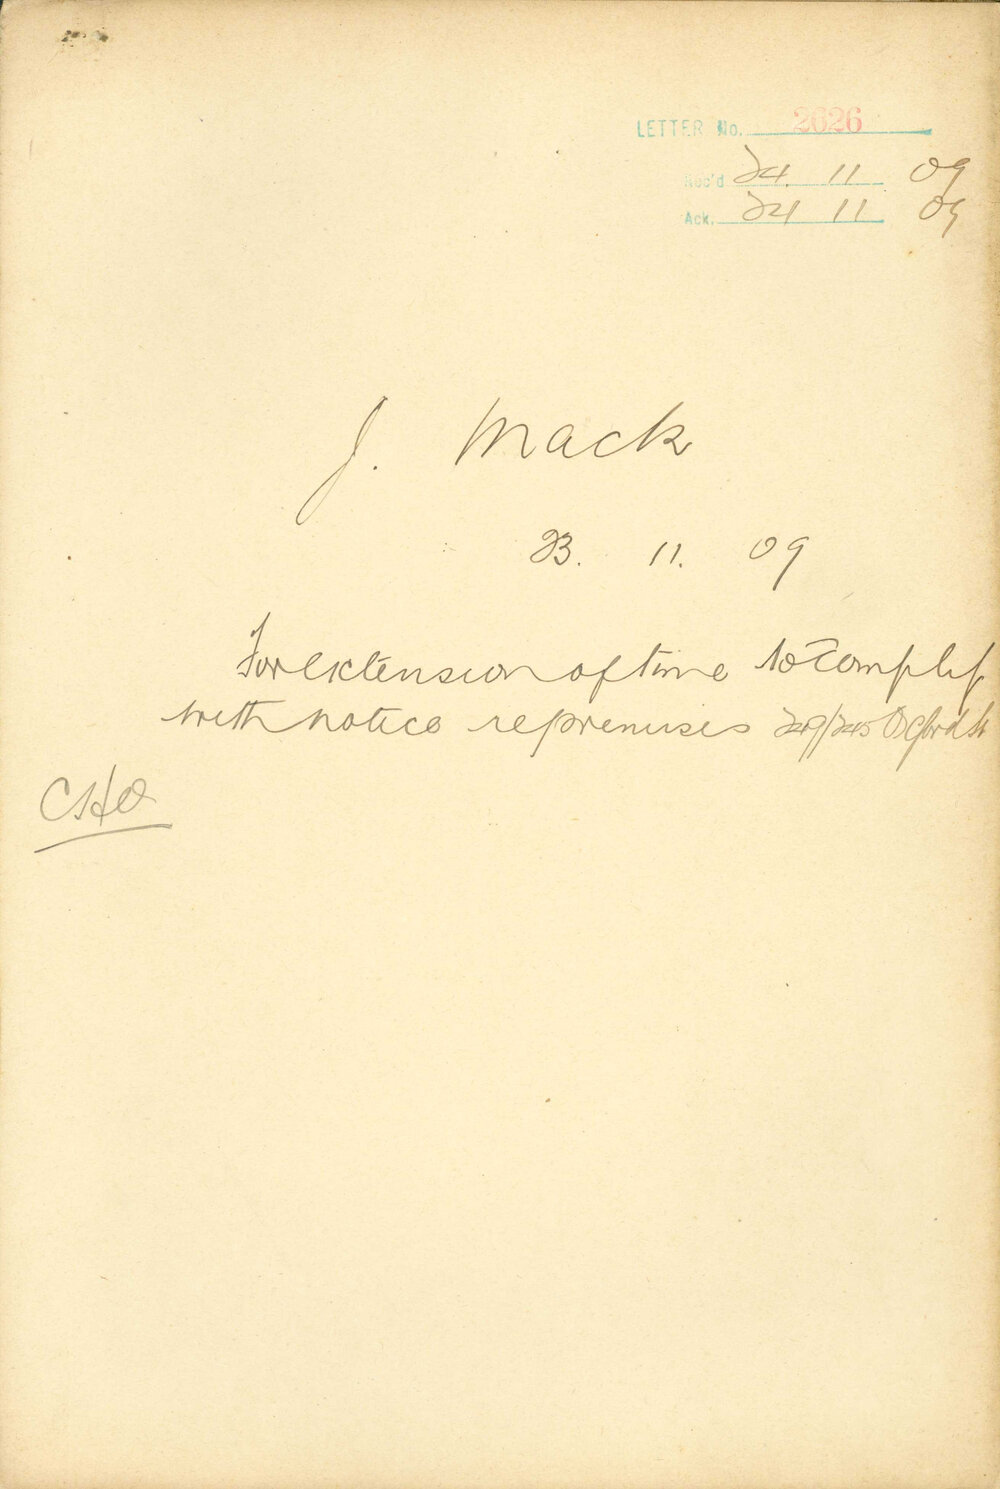 LETTER No. 2626
Rec'd 24 11 09
Ack. 24 11 09
J. Mack
23. 11. 09
For extension of time to comply
with notice re premises Oxford St
CHO